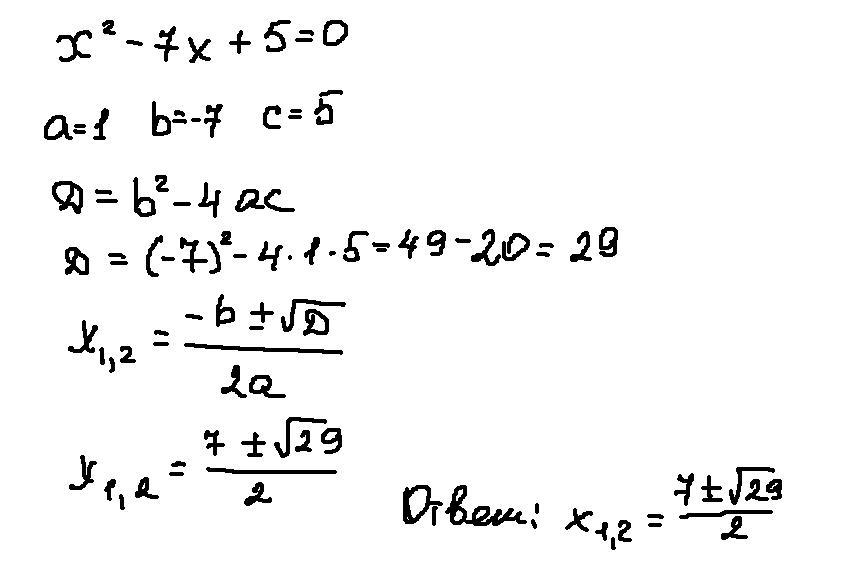 x² - 7x + 5 = 0
a = 1 b = -7 c = 5
D = b² - 4ac
D = (-7)² - 4 · 1 · 5 = 49 - 20 = 29
x₁,₂ = (-b ± √D) / 2a
x₁,₂ = (7 ± √29) / 2
Ответ: x₁,₂ = (7 ± √29) / 2